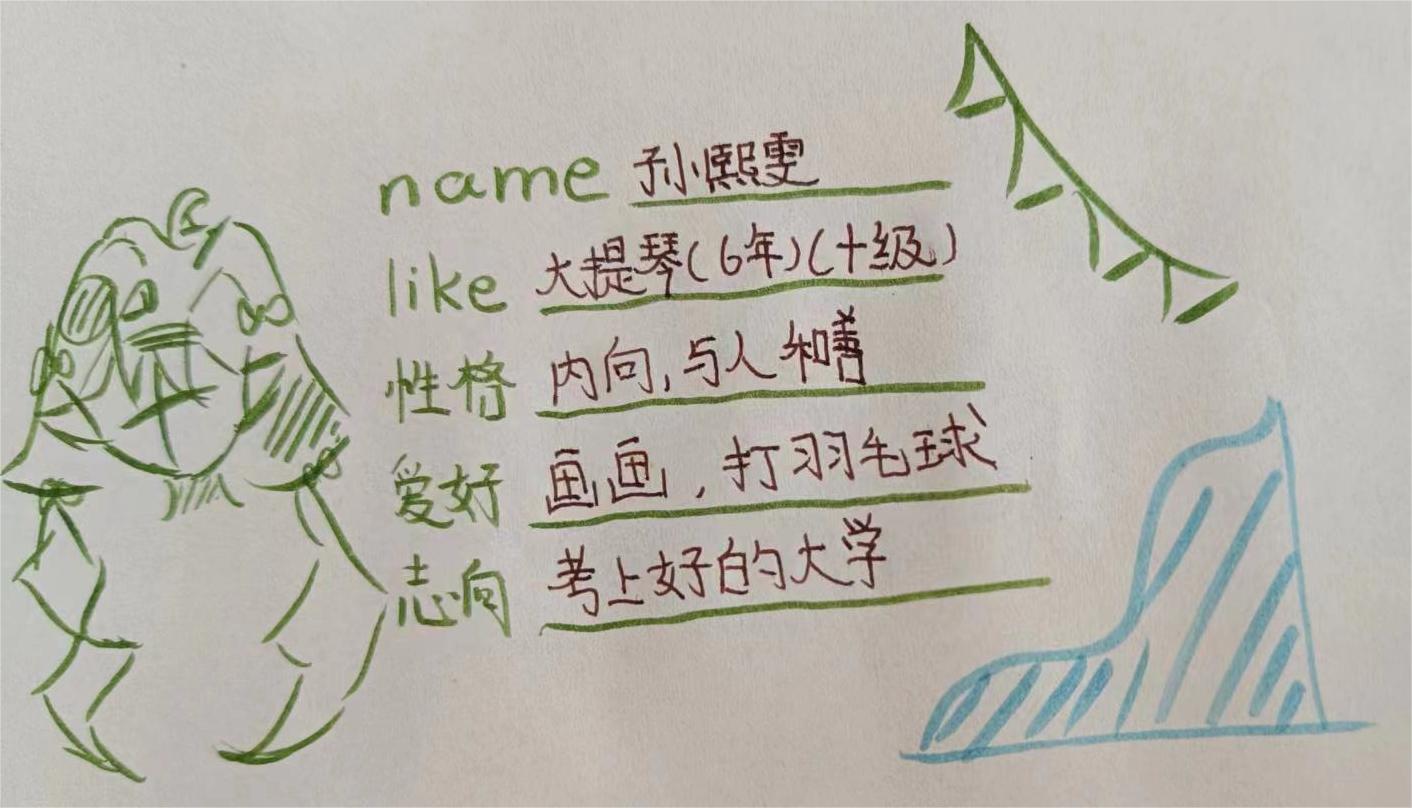 name 孙熙雯
like 大提琴(6年)(十级)
性格 内向,与人和善
爱好 画画,打羽毛球
志向 考上好的大学